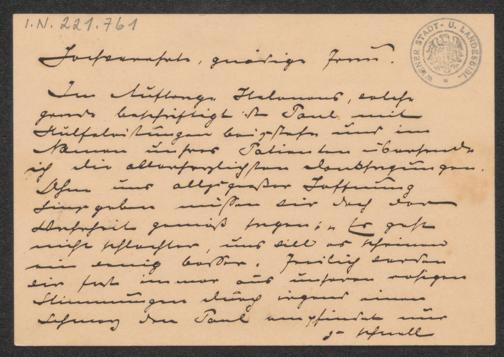 I.N. 221.761
WIENER STADT- U. LANDESBIBL.
Hochverehrte, gnädige Frau.
Im Auftrage Helenens, welche
gerade beschäftigt ist Paul mit
Hülfeleistungen beizustehen und im
Namen unseres Patienten übersende
ich die allerherzlichsten Danksagungen.
Ohne uns allzugroßer Hoffnung
hinzugeben müssen wir doch der
Wahrheit gemäß sagen: Es geht
nicht schlechter, uns will es scheinen
ein wenig besser. Freilich werden
wir fast immer aus unseren rosigen
Stimmungen durch irgend einen
Schmerz den Paul empfindet nur
zu schnell